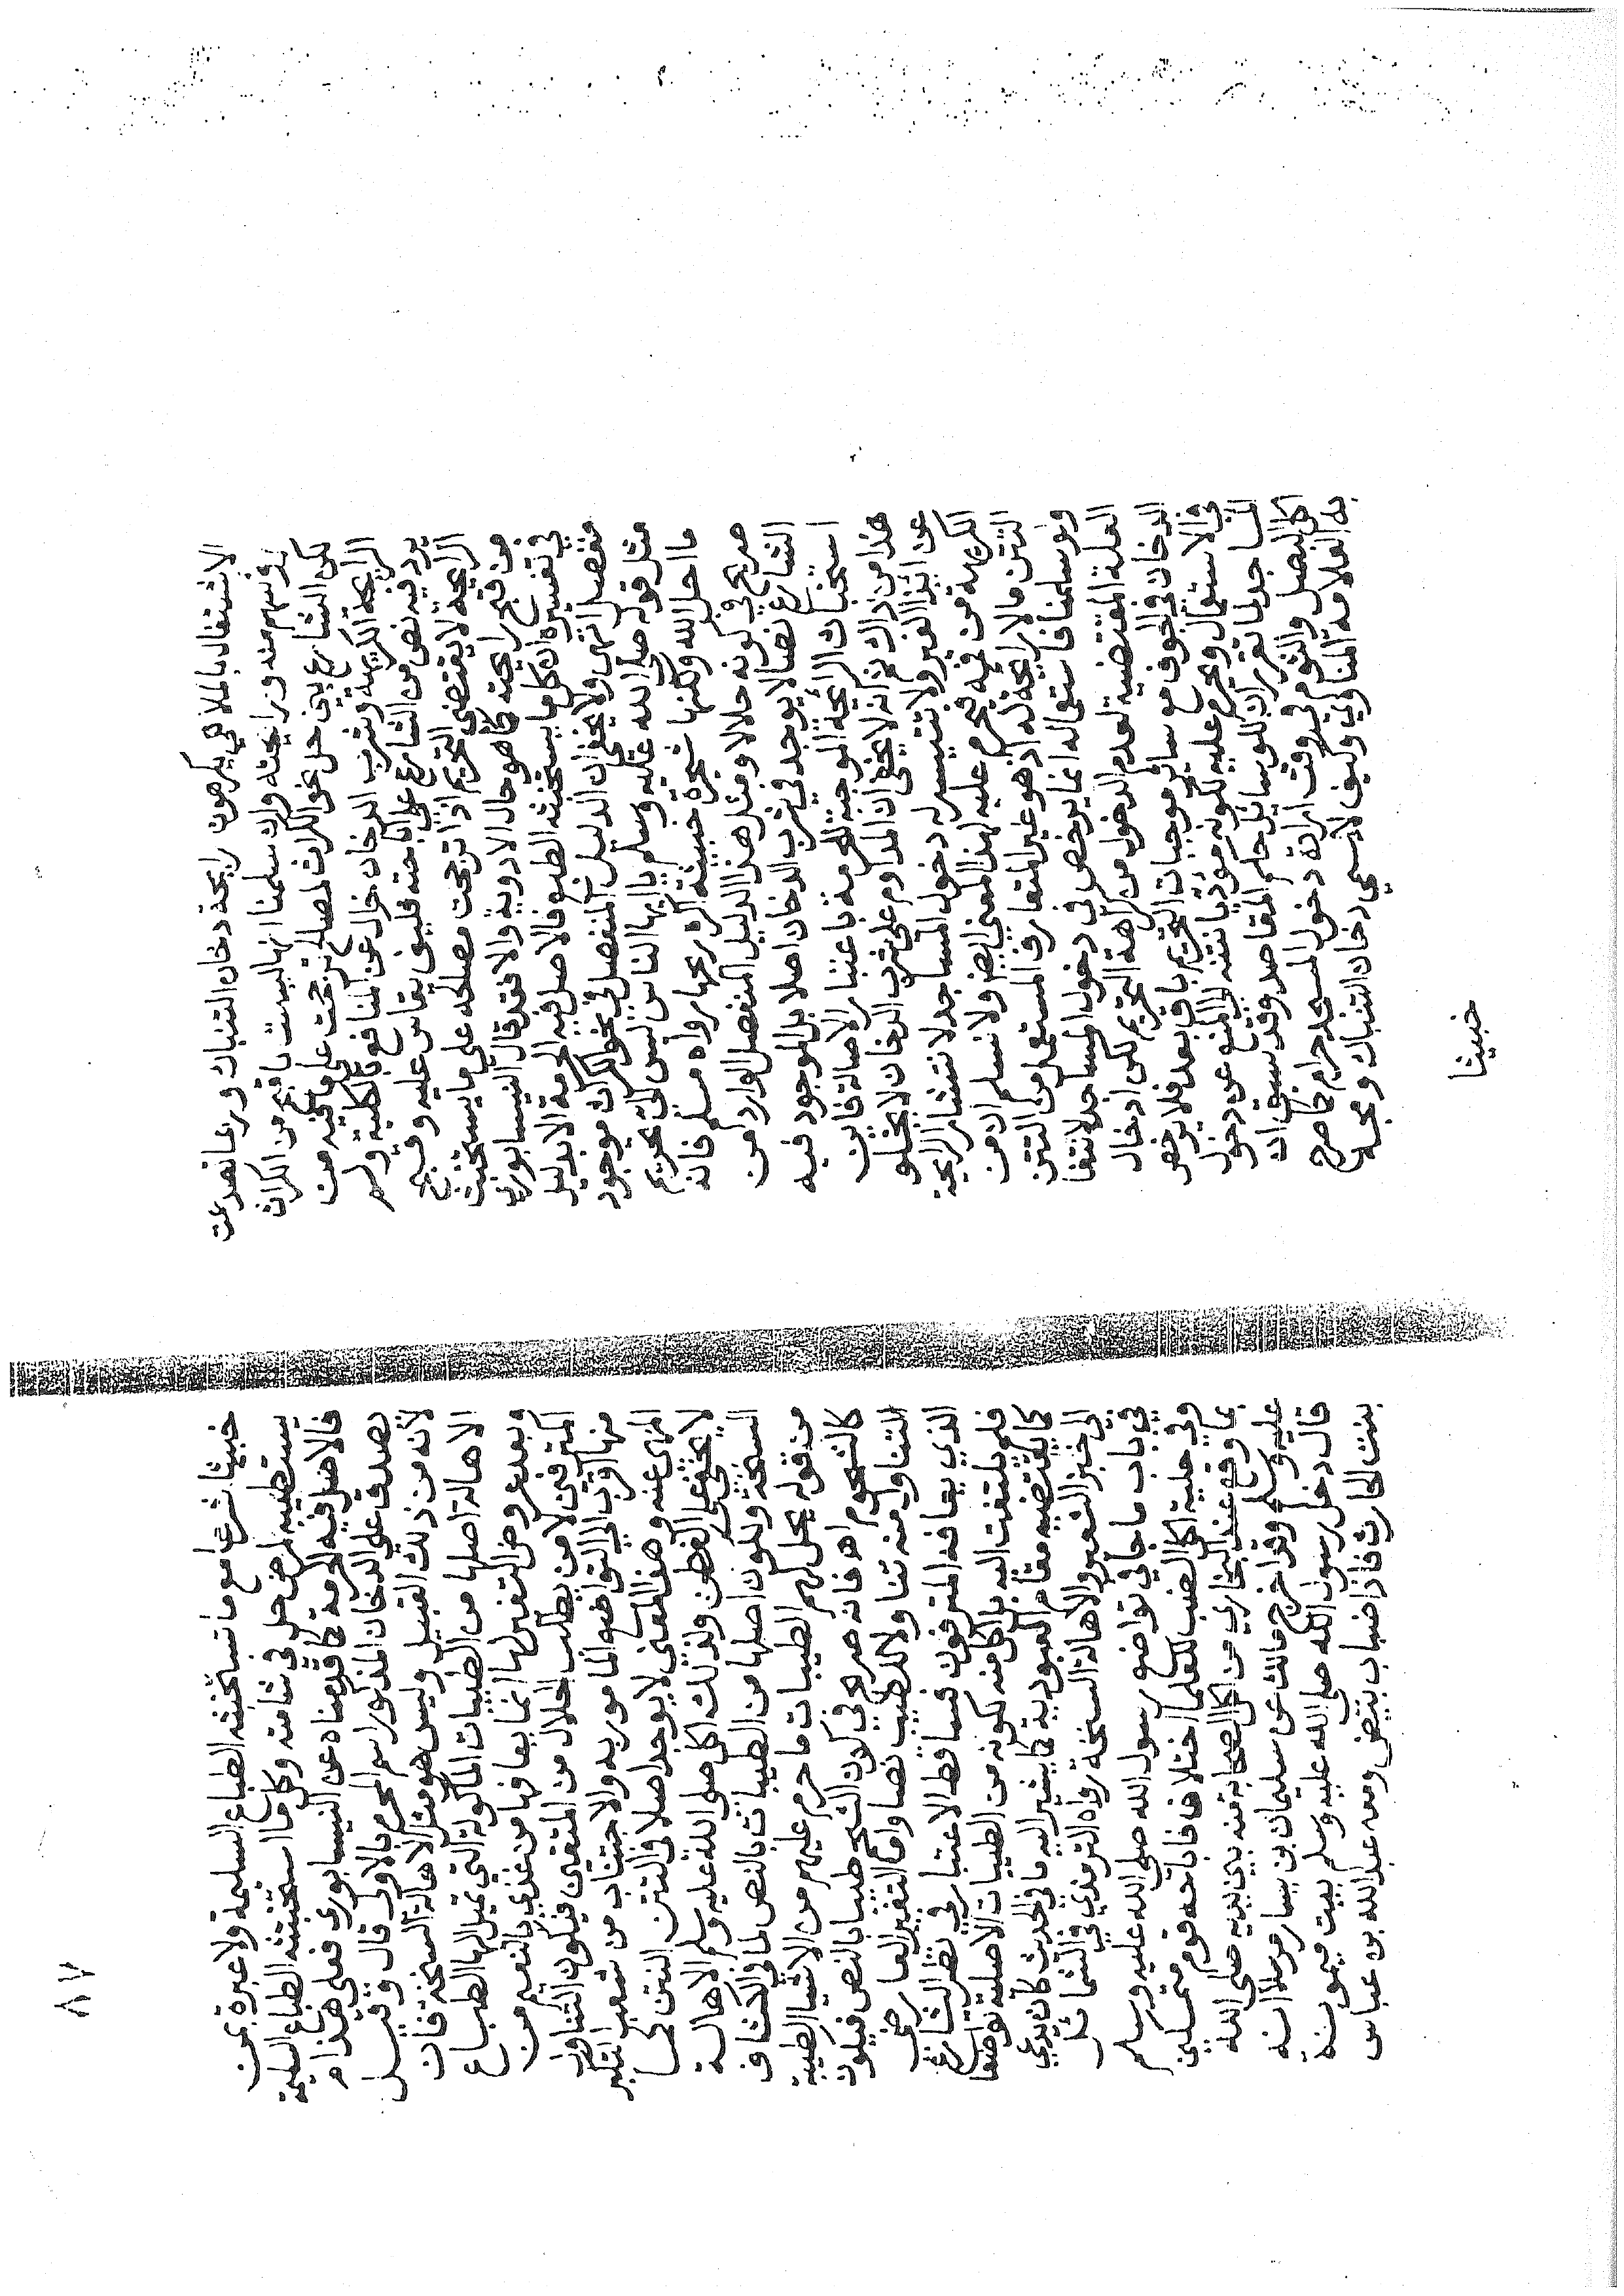 الاشتغال بالملاهي يكرهون رايحة دخان التنباك وربما تصدعت
رؤسهم منه ومن رايحته وان سلمنا انها ليست باقبح من الكراث
لكن الشارع بين حل نحو الكراث لمصالح ترجحت على ما فيه من
الريحة الكريهة وشرب الدخان خال عن المنافع بالكلية ولم
يرد فيه نص من الشارع على اباحته فكيف يقاس عليه وقبح
الرايحة لا يقتضي التحريم اذا ترجحت مصلحه على ما يستخبث
من قبح رايحته كما هو حال الادوية والا فقد قال النيسابوري
في تفسيره ان كل ما يستخبثه الطبع فالاصل فيه الحرمة الا بدليل
منفصل انتهى ولا يخفى ان الدليل المنفصل في نحو الكراث موجود
مثل قوله صلى الله عليه وسلم يا ايها الناس ليس لي تحريم
ما احل الله ولكنها شجرة خبيثة اكره ريحها رواه مسلم فانه
صريح في كونه حلالا ومثل هذا الدليل المنفصل الوارد من
الشارع نصا لا يوجد في شرب الدخان اصلا بل الموجود فيه
استخباث الرائحة الموجبة للحرمة باعتبار الاصالة فاين
هذا من ذاك ثم انه لا يخفى ان المداوم على شرب الدخان لا يخلو
عن ايذاء الغير ولا تتيسر له دخول المساجد لانتشار الرايحة
الكريهة من فمه فيحرم عليه لهذا المعنى ايضا ولا نسلم ان من
التتن ما لا رايحة له اذ هو غير المتعارف المستعمل من التتن
ولو سلمنا فاستعماله انما يرخص في دخول المساجد لانتفا
العلة المقتضية لعدم الدخول من كراهة التحريم لكن ادخال
الدخان في الجوف مع سائر موجبات التحريم باق بعد فلا يرخص
في الاستعمال ويحرم عليه لكونه مؤديا بنتنه الى المنع عن دخول
المساجد لما تقرر ان للوسائل حكم المقاصد وقد سبق ان
اكل البصل والثوم في وقت ارادة دخول المسجد حرام كما صرح
به العلامة المناوي وكيف لا تسمي دخان التنباك ومجه
خبيثا
خبيثا شرعا مع ما تستخبثه الطباع السليمة ولا عبرة بمن
يستطيبه لمرض حل في شامته وكل ما استخبثته الطباع السليمة
فالاصل فيه الحرمة كما قدمناه عن النيسابوري فعلى هذا م
يصدق على الدخان المذكور اسم المحرم بالاولى قال وقيل
لانه من ذلك القبيل وليس هو مثل الاهالة السنخة فان
الاهالة اصلها من الطيبات الماكولة التي تميل اليها الطباع
وبعد عروض التغير لها انما يعافها من غذي بالنعيم من
المترفين لا من يطلب الحلال من المتقين فيكون التناول
منها اقرب الى التواضع المامور به والاجتناب من شعب التكبر
المنهي عنه وهذا المعنى لا يوجد اصلا في التتن النتن كما
لا يخفى على الفطن ولذلك اكل صلى الله عليه وسلم الاهالة
السنخة ولكون اصلها من الطيبات بالنص لما في الكشاف
من قوله يحل لهم الطيبات ما حرم عليهم من الاشيا الطيبة
كالشحوم اهـ فانه صريح في كون الشحم طيبا بالنص فيكون
التناول منه تناولا للطيب نصا واما التغير العارض
الذي يعافه المترفون فساقط الاعتبار في نظر الشارع
فلم يلتفت اليه باكل منه لكونه من الطيبات الاصلية تواضعا
كما يقتضيه مقام العبودية كما يشير اليه ما في الحديث كان يدعى
الى خبز الشعير والاهالة السنخة رواه الترمذي في الشمائل
في باب ما جا في تواضع رسول الله صلى الله عليه وسلم
وفي حلية اكل الضب للعلما اختلاف فاباحه قوم متمسكين
بما وقع عند البخاري من اكل الصحابة منه بين يديه صلى الله
عليه وسلم وقد اخرج مالك عن سليمان بن يسار مرسلا انه
قال دخل رسول الله صلى الله عليه وسلم بيت ميمونة
بنت الحارث فاذا ضباب ببيض ومعه عبد الله بن عباس
٨٧